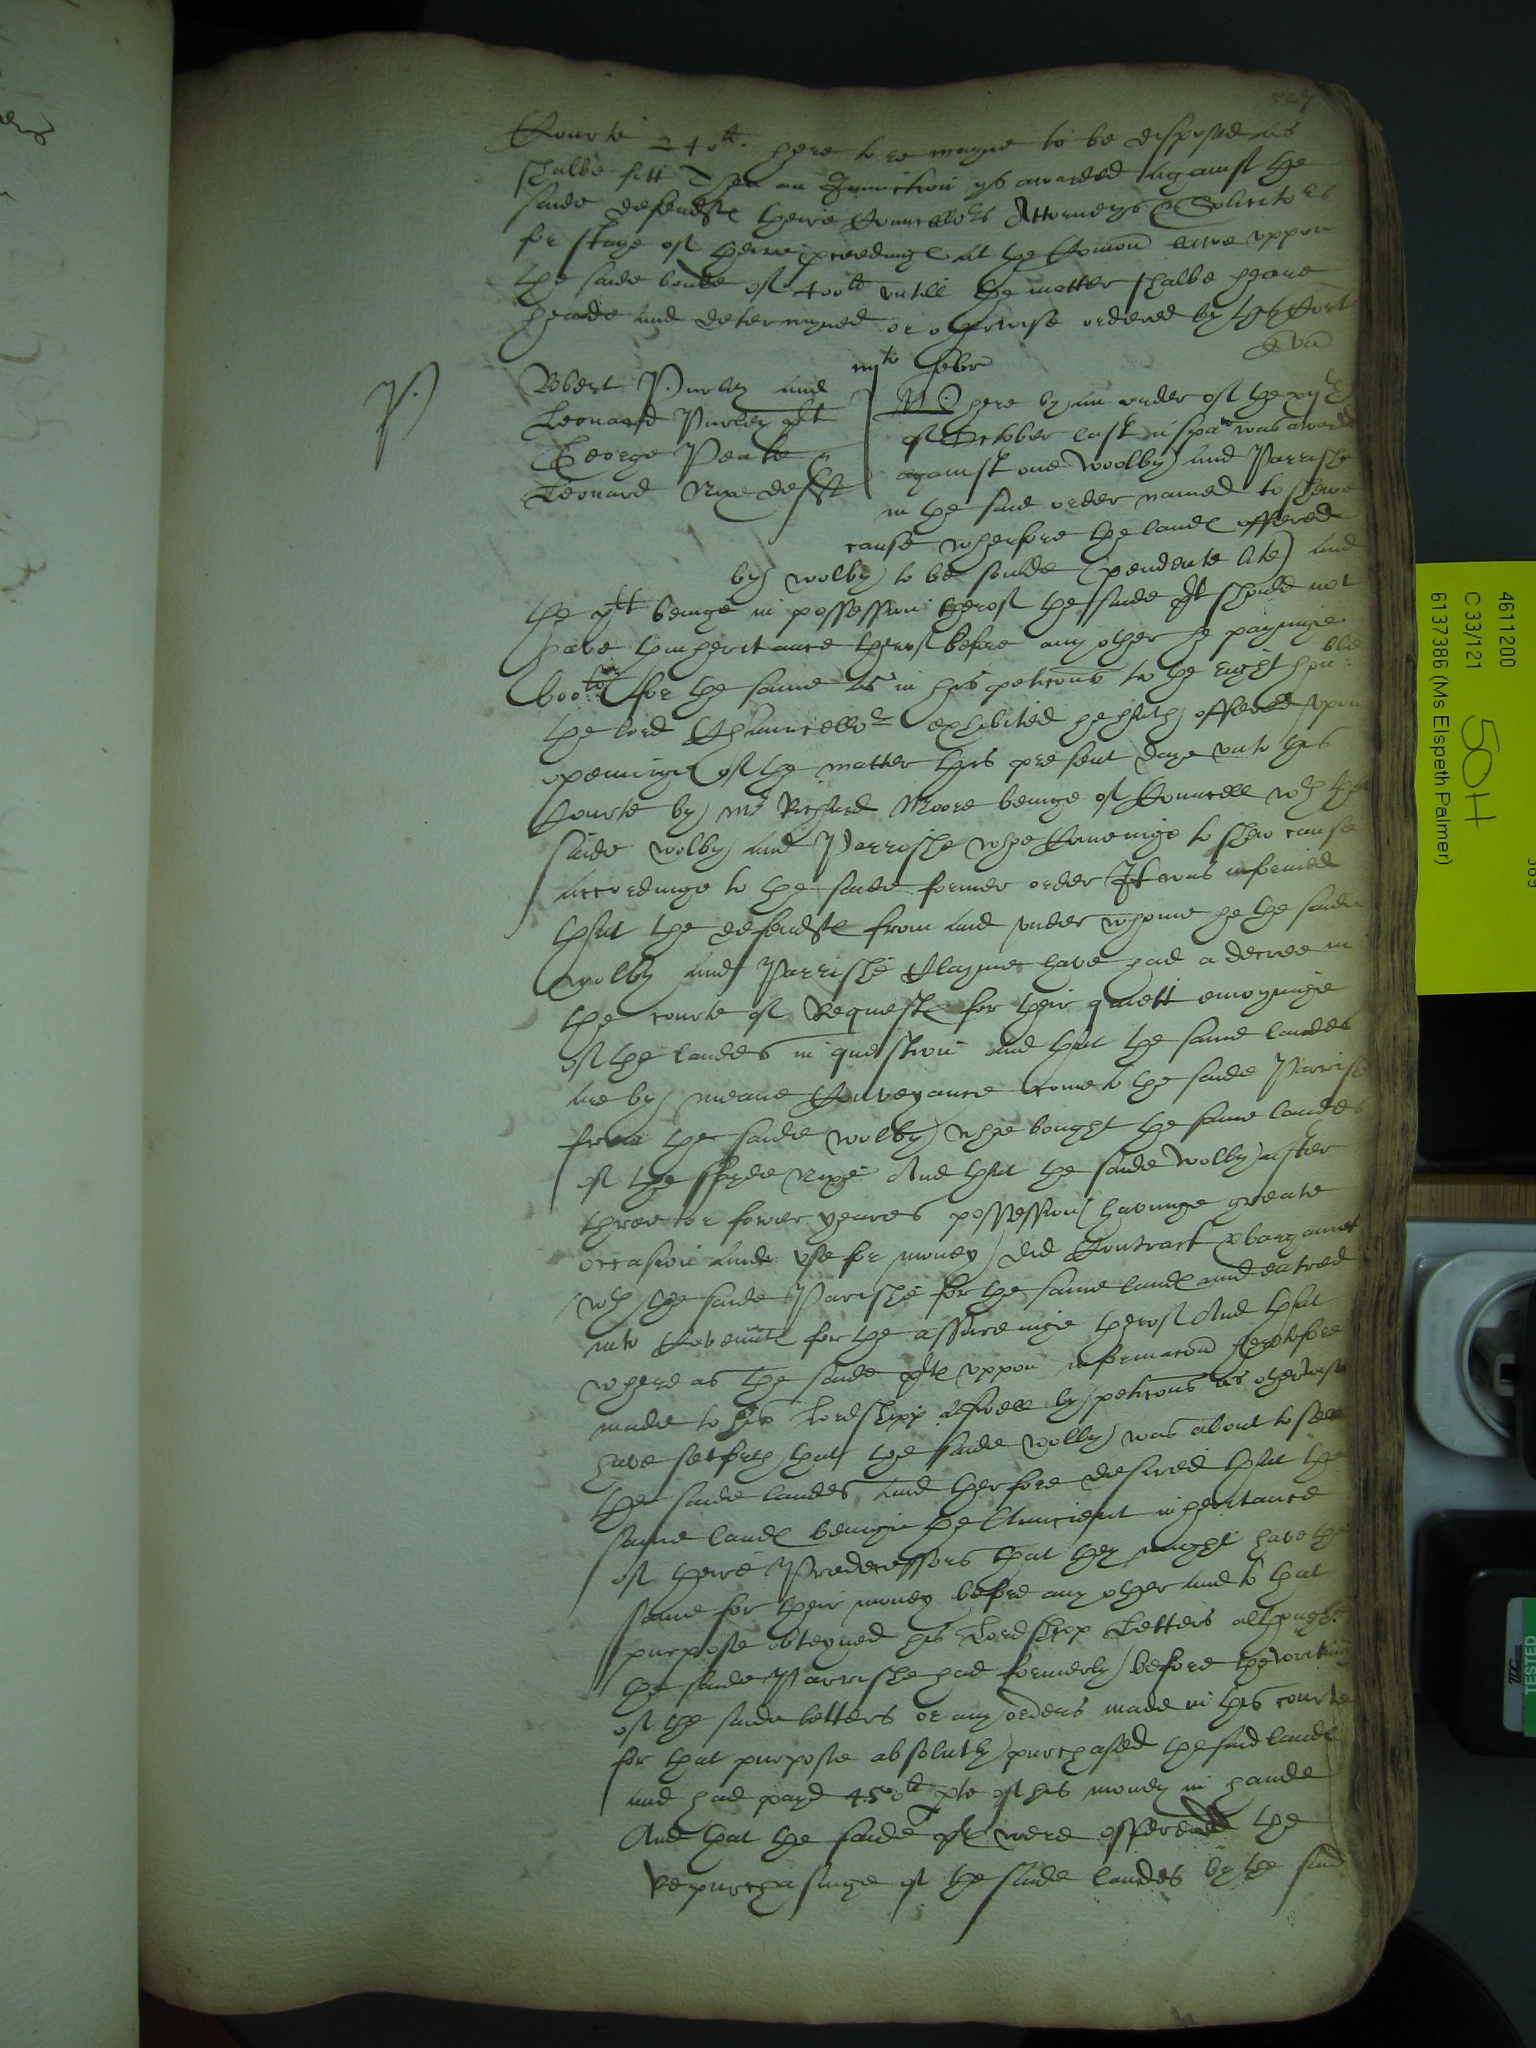 Courte 240li. here to remayne to be disposed as
shalbe fitt Then an Iniunction ys awarded against the
saide defendtes theire Councello:rs Attorneys & Solicitors
for staye of theire proceedinges at the Comon lawe vppon
the saide bonde of 400li vntill the matter shalbe heare
hearde and determyned or otherwise ordered by this Cort
vijto febr
P.
Robert Purley and
Leonard Purley plt
George Peake
Leonard Nixe deftes
Where by an order of the xijth
of October last a spa was awarded
against one Woolby and Parrishe
in the said order named to shewe
cause wherfore the landes offered
by wolby to be soulde (pendente lite) and
the plt beinge in possession therof the saide plt should not
have thinheritance therof before any other he payinge
for the same as in his peticons to the right hon:ble
the lord Chauncello:r exhibited he hath offered vpon
openinge of the matter this present daye vnto this
Courte by Mr Richard Moore beinge of Councell wth the
saide wolby and Parrishe whoe Comeinge to shew cause
accordinge to the saide former order It was informed
that the defendtes from and vnder whome he the saide
wolby and Parrishe Clayme have had a decree in
the courte of Requestes for their quiett enioyinge
of the landes in question and that the same landes
are by meane Conveyance come to the saide Parrishe
from the saide wolby whoe bought the same landes
of the sayde Nixe And that the saide wolby after
three or fower yeares possession havinge greate
occasion and vse for money did Contract & bargaine
wth the saide Parrishe for the same landes and entred
into Covenntes for the assureinge therof And that
where as the saide pltes vppon informacon heretofore
made to his Lordshipp aswell by peticons as otherwise
have setforth that the saide wolby was about to sell
the saide landes and therfore desired that the
same landes beinge the Auncient inheritance
of theire Predecessors that they might have the
same for their money before any other and to that
purpose obteyned his Lordshipp Letters although
the saide Parrishe had formerly before the writing
of the saide letters or any orders made in this courte
for that purpose absolutly purchased the said landes
and had payd 450li pte of his money in hande
And that the saide pltes were offered the
repurchasinge of the saide landes by the said
4611200
C 33/121
6137386 (Ms Elspeth Palmer)
50H
TESTED